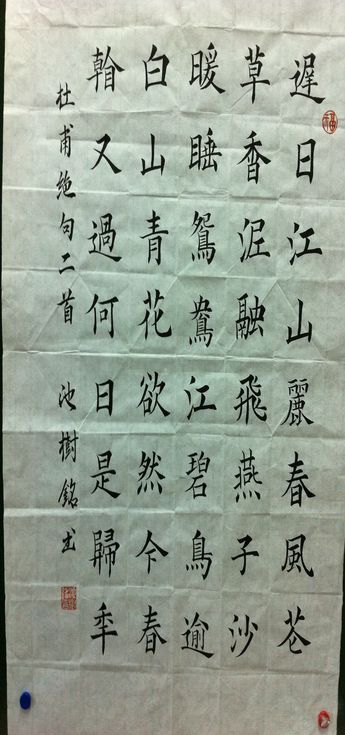 遲日江山麗春風芲
草香泥融飛燕子沙
暖睡鴛鴦江碧鳥逾
白山青花欲然今春
看又過何日是歸秊
杜甫絶句二首 池樹銘书
福